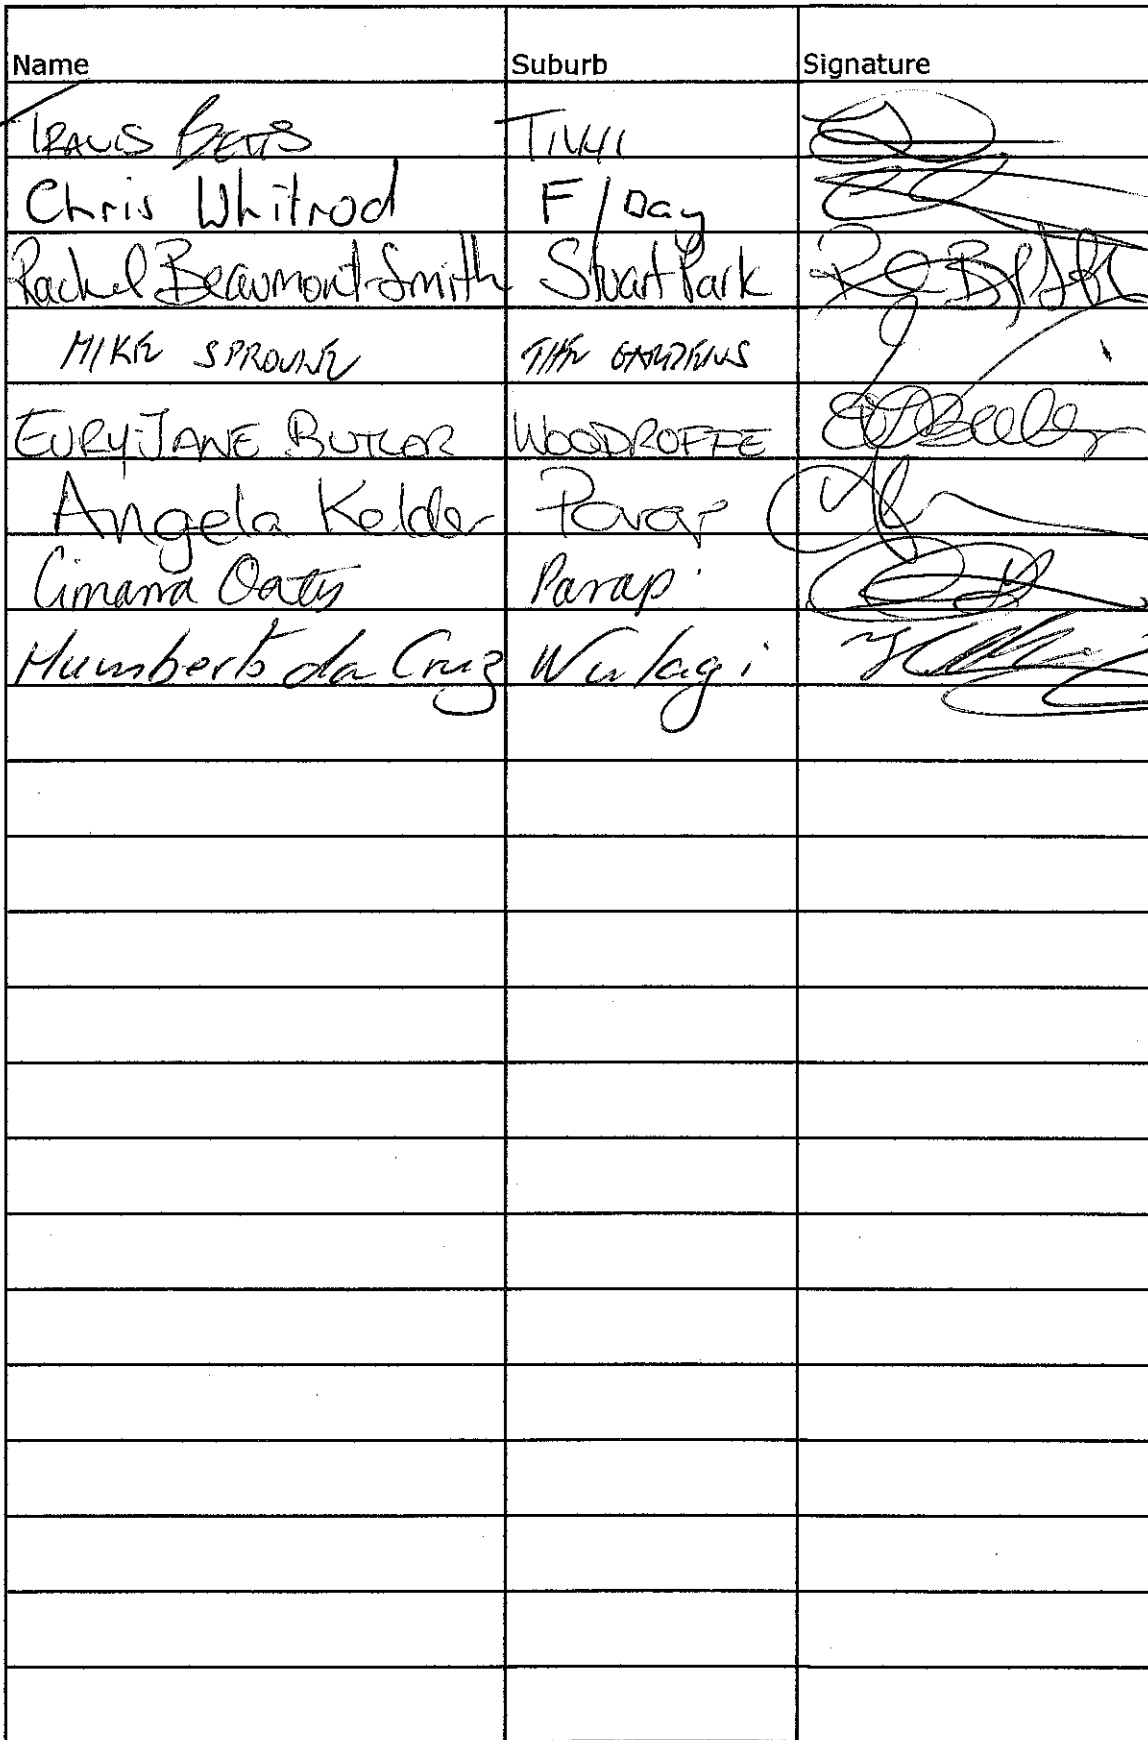 Name Suburb Signature
TRAVIS BETTS TIWI
Chris Whitrod F/Day
Rachel Beaumont-Smith Stuart Park
MIKE THE GARDENS
EURY-JANE BUTLER WOODROFFE
Angela Kelder Parap
Oates Parap
Humberto da Cruz Wulagi